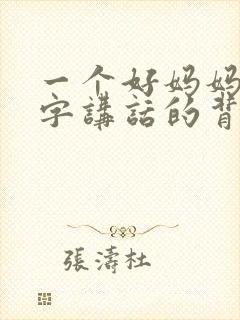 一个好妈妈
字講話的背
張濤杜